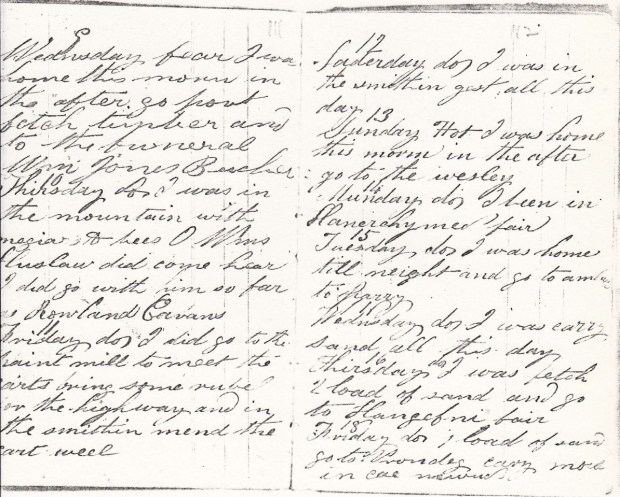 9
Wednsday fear I wa
home this morn in
the after go port
fetch timber and
to the buneral
Wm Jones Bucher
Thirsday do I was in
the mountain with
O Wms
did come hear
I did go with him so far
as Rowland Eavans
11
Friday do I did go to the
paint mill to meet the
carts bring some rubel
for the highway and in
the smithin mend the
cart weel
12
Saterday do I was in
the smithin gest all this
day
13
Sunday Hot I was home
this morm in the after
go to the wesley
Munday do I been in
Llanerchymed fair
15
Tuesday do I was home
till neight and go to
to parry
Wednesday do I was carry
sand all this day
Thirsday do I was fetch
2 load of sand and go
to Llangefni fair
18
Friday do 1 load of sand
go to carry
in